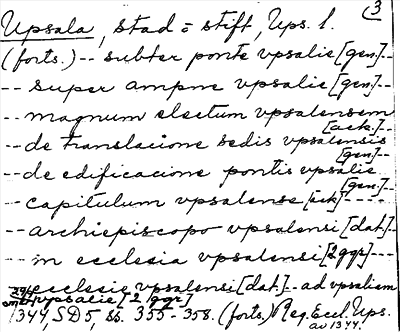 (3
Upsala, stad o stift, Ups. l.
(forts.) -- subter ponte vpsalie [gen.] --
-- super ampne vpsalie [gen.] --
-- magnum electum vpsalensem [ack.] --
-- de translacione sedis vpsalensis [gen.] --
-- de edificacione pontis vpsalie [gen.] --
-- capitulum vpsalense [ack.] ----
-- archiepiscopo vpsalensi [dat.] --
-- in ecclesia vpsalensi [2 ggr] ----
ecclesie vpsalensi [dat.] -- ad vpsaliem
vpsalie [2 ggr]
1344, SD5, ss. 355-358. (forts.) Reg. Eccl. Ups.
av 1344.